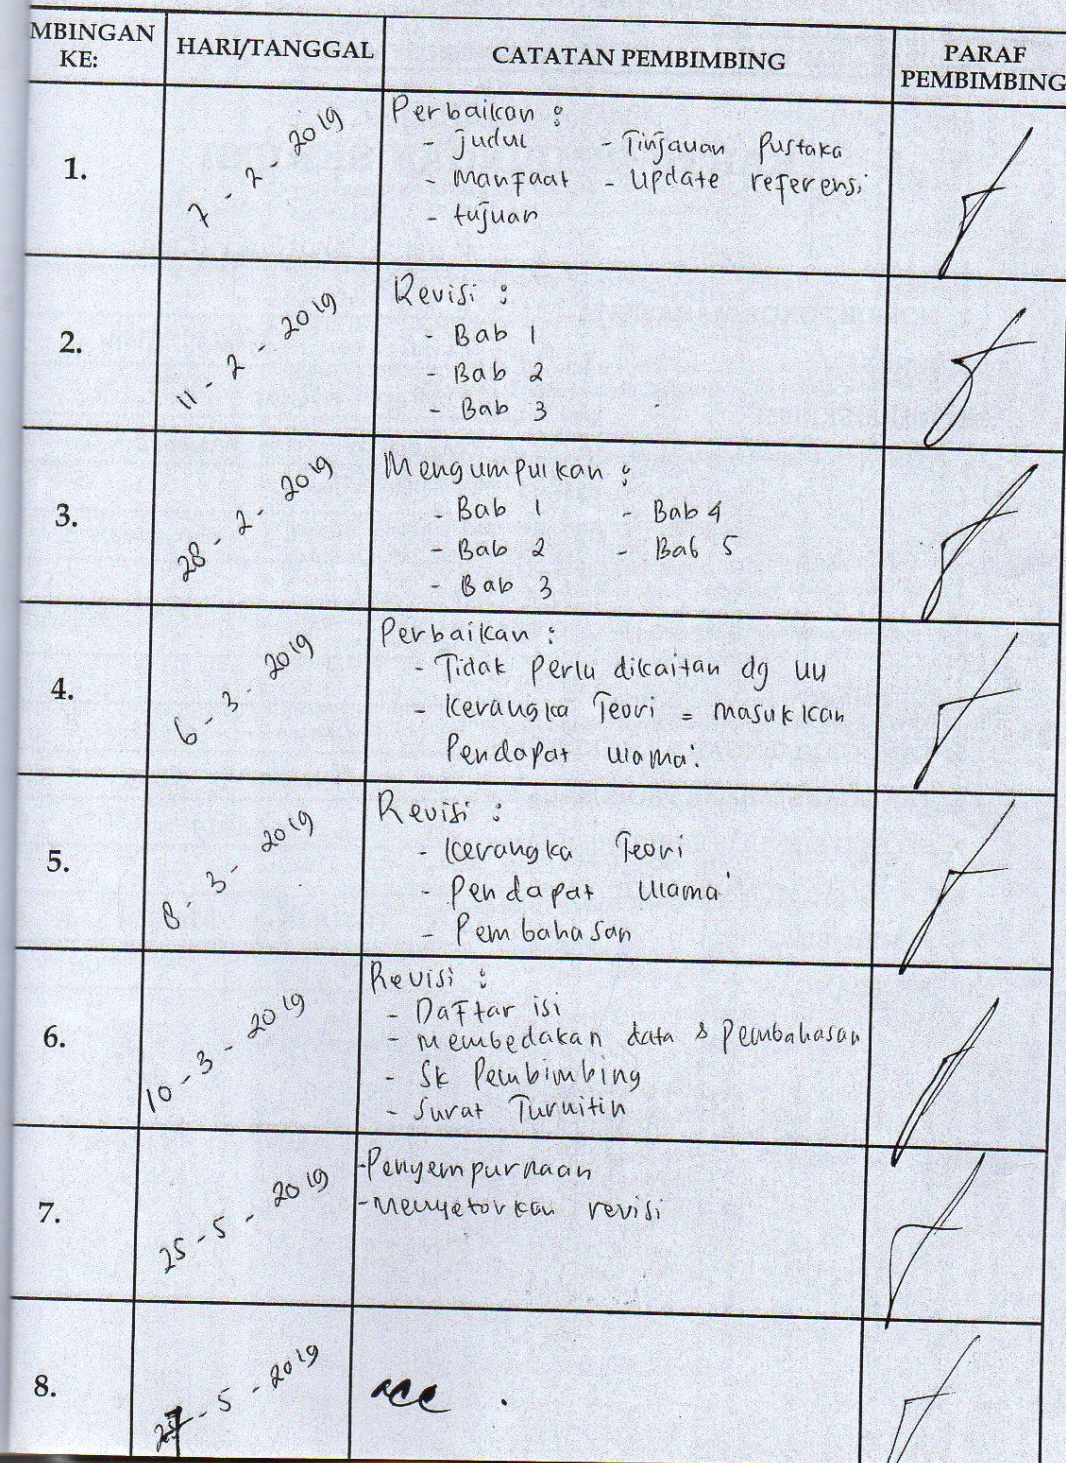 MBINGAN KE: HARI/TANGGAL CATATAN PEMBIMBING PARAF PEMBIMBING
1. 7 - 2 - 2019
Perbaikan :
- judul - Tinjauan Pustaka
- Manfaat - Update referensi
- tujuan
2. 11 - 2 - 2019
Revisi :
- Bab 1
- Bab 2
- Bab 3
3. 28 - 2 - 2019
Mengumpulkan :
- Bab 1 - Bab 4
- Bab 2 - Bab 5
- Bab 3
4. 6 - 3 - 2019
Perbaikan :
- Tidak perlu dikaitan dg UU
- Kerangka Teori = masukkan
Pendapat ulama'.
5. 8 - 3 - 2019
Revisi :
- Kerangka Teori
- Pendapat Ulama'
- Pembahasan
6. 10 - 3 - 2019
Revisi :
- Daftar isi
- Membedakan data & Pembahasan
- SK Pembimbing
- Surat Turnitin
7. 25 - 5 - 2019
- Penyempurnaan
- Menyetorkan revisi
8. 27 - 5 - 2019
acc .